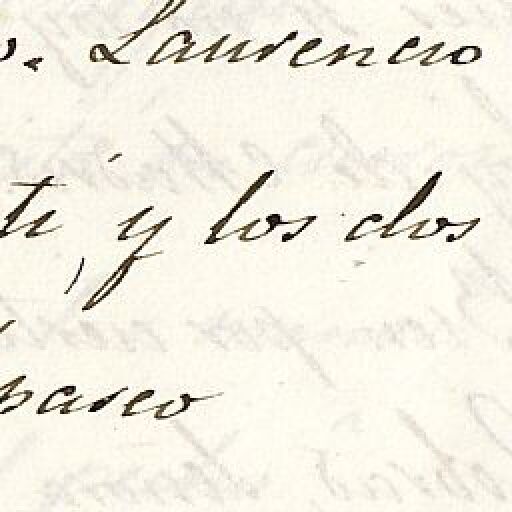 o. Laurencio
te, y los dos
paseo